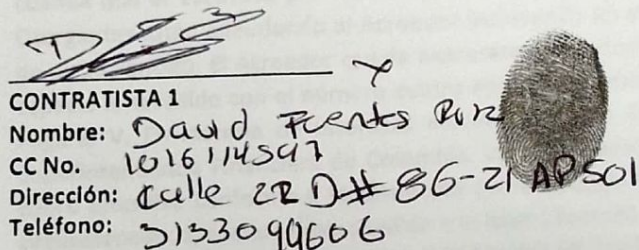 CONTRATISTA 1
Nombre: David Fuentes Ruiz
CC No. 1016114597
Dirección: Calle 22 D# 86-21 AP 501
Teléfono: 3133099606